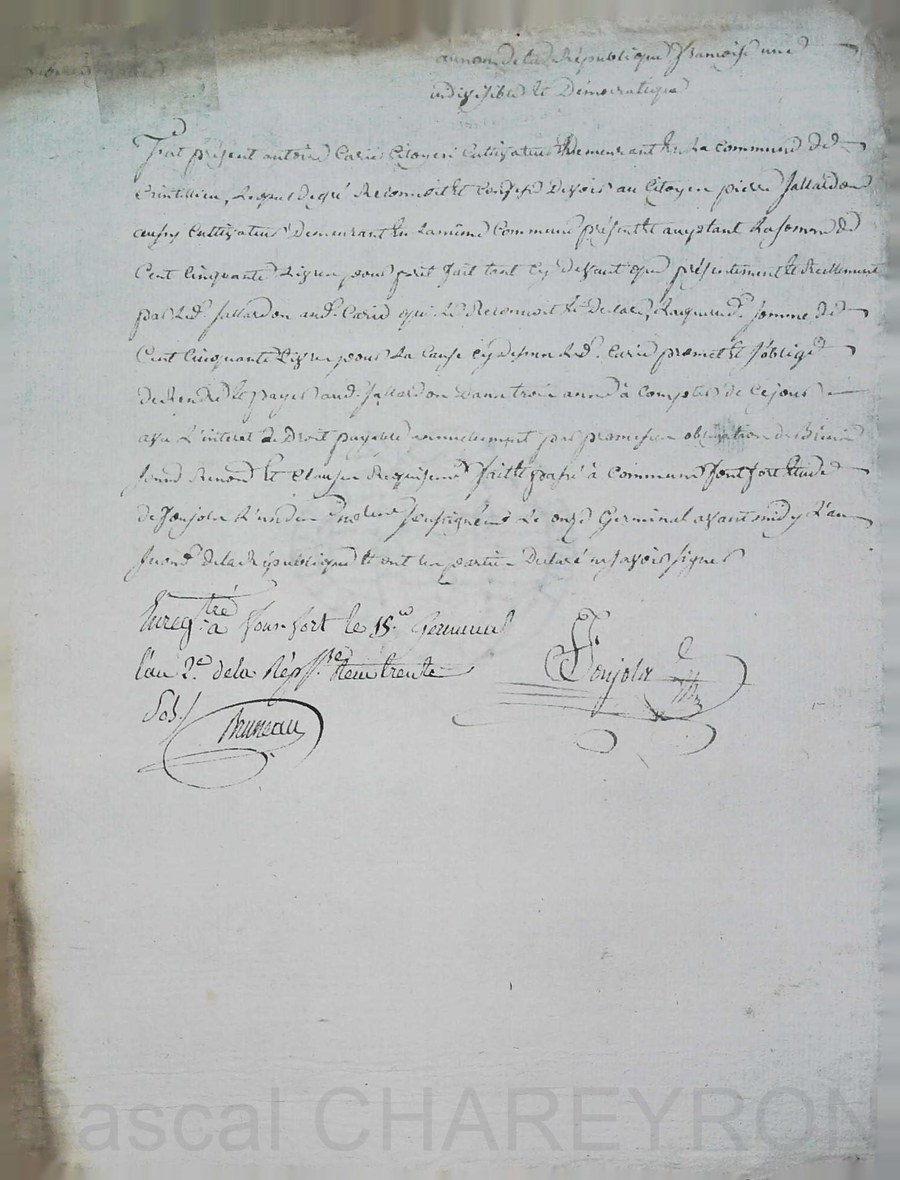 au nom de la République françoise une
indivisible et Démocratique
Fut présent antoine Carié Citoyen Cultivateur demeurant en la commune de
Lequel de gré Reconnoit et confesse Devoir au Citoyen pierre Jallardon
Cultivateur Demeurant en la même Commune présent et acceptant la somme de
Cent Cinquante Livres pour prêt fait tant cy devant que présentement et Réellement
par led. Jallardon aud. Carié qui le Reconnoit et Declare, Laquelle d. somme de
Cent Cinquante Livres pour la Cause cy dessus led. Carié promet et s'oblige
de Rendre et payer aud. Jallardon dans trois années à Compter de ce jour
avec L'interet de Droit payable annuellement par promesse obligation de Biens
fait et passé à Commune fontfort Etude
de Fonjolix L'un des no.res soussignés Le onze Germinal avant midy L'an
second de la République et ont les parties Déclaré ne savoir signer
Enreg.tré à Fonsfort le 15.e Germinal
l'an 2.e de la Rép. trente
Sols
Bruneau
Fonjolix
Pascal CHAREYRON